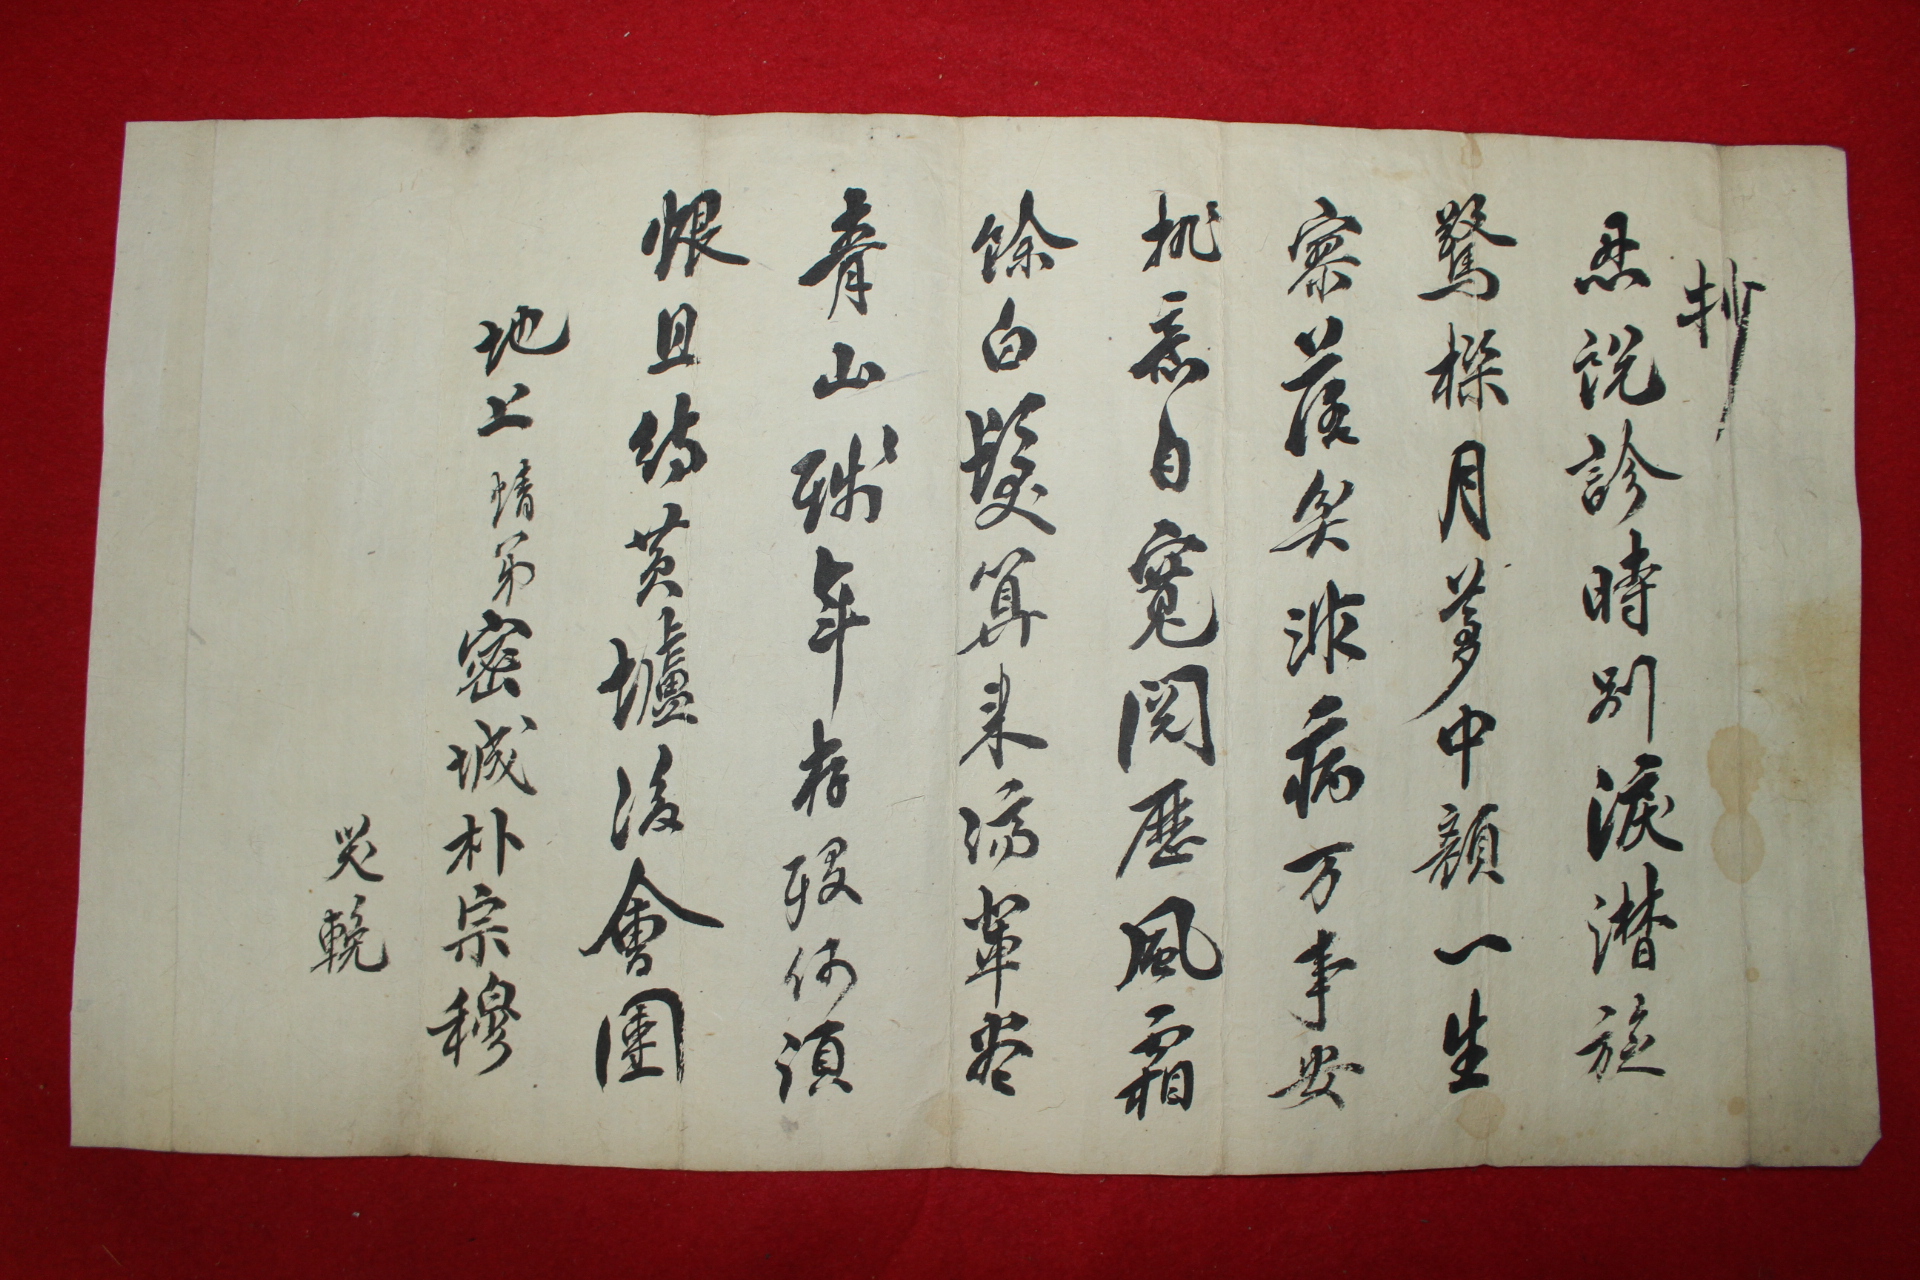 抄
忍説診時別淚潸旋
驚樑月夢中顔一生
寥落矣非病万事安
排意自寬閱歷風霜
餘白髮算來儕輩盡
青山殘年存歿何須
恨且約黃壚後會團
地上情弟密城朴宗穆
哭輓